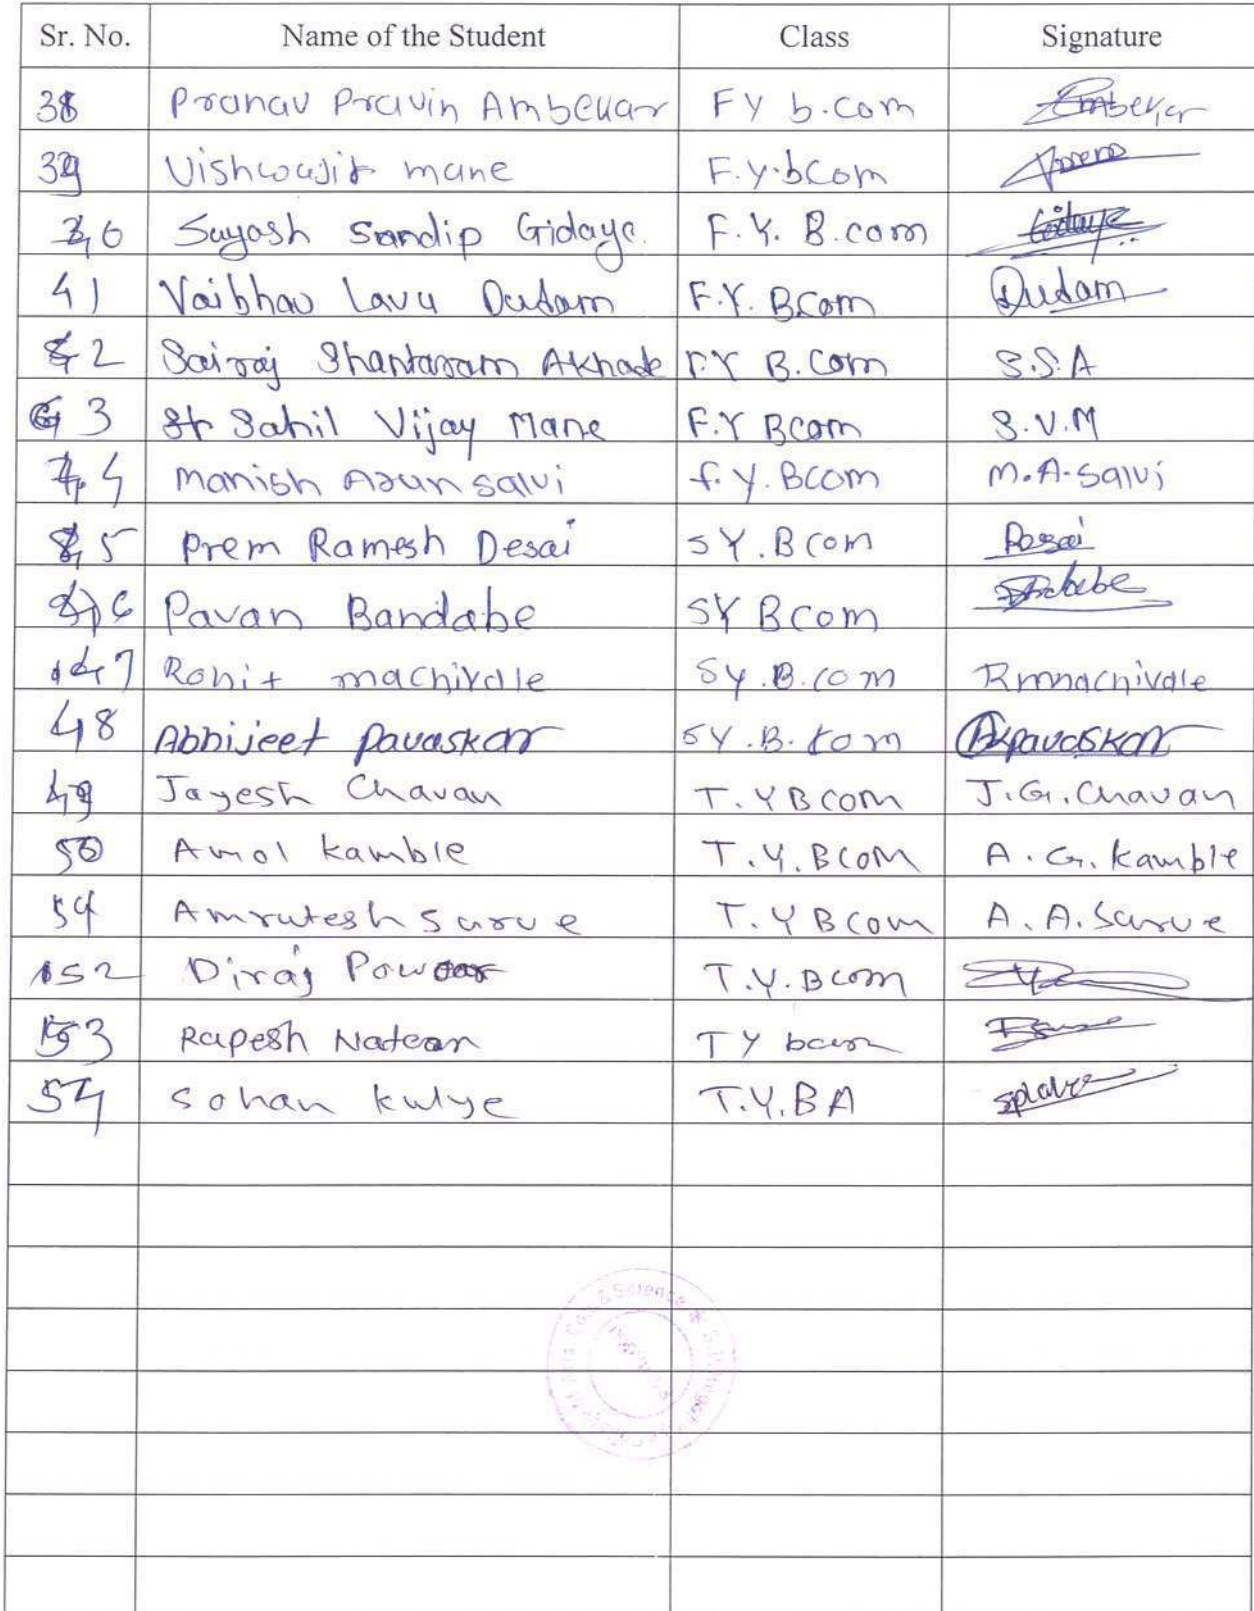 Sr. No. Name of the Student Class Signature
38 Pranav Pravin Ambekar FY b.com Ambekar
39 Vishwajit mane F.Y.bcom
40 Suyash Sandip Gidaye. F.Y. B.com Gidaye
41 Vaibhav Lavu Dudam F.Y. B.com Dudam
42 Sairaj Shantaram Akhade F.Y B.Com S.S.A
43 Sahil Vijay Mane F.Y Bcom S.V.M
44 Manish Arun Salvi f.y.Bcom M.A.Salvi
45 Prem Ramesh Desai SY.Bcom Desai
46 Pavan Bandabe SY Bcom
47 Rohit machivale SY.B.com Rmmachivale
48 Abhijeet Pavaskar SY.B.com Pavaskar
49 Jayesh Chavan T.YBCOM J.G.Chavan
50 Amol kamble T.Y.BCOM A.G.kamble
51 Amrutesh Surve T.YBCOM A.A.Surve
52 Diraj Powar T.Y.Bcom
53 Rupesh TY bcom
54 Sohan kulye T.Y.BA
& Science